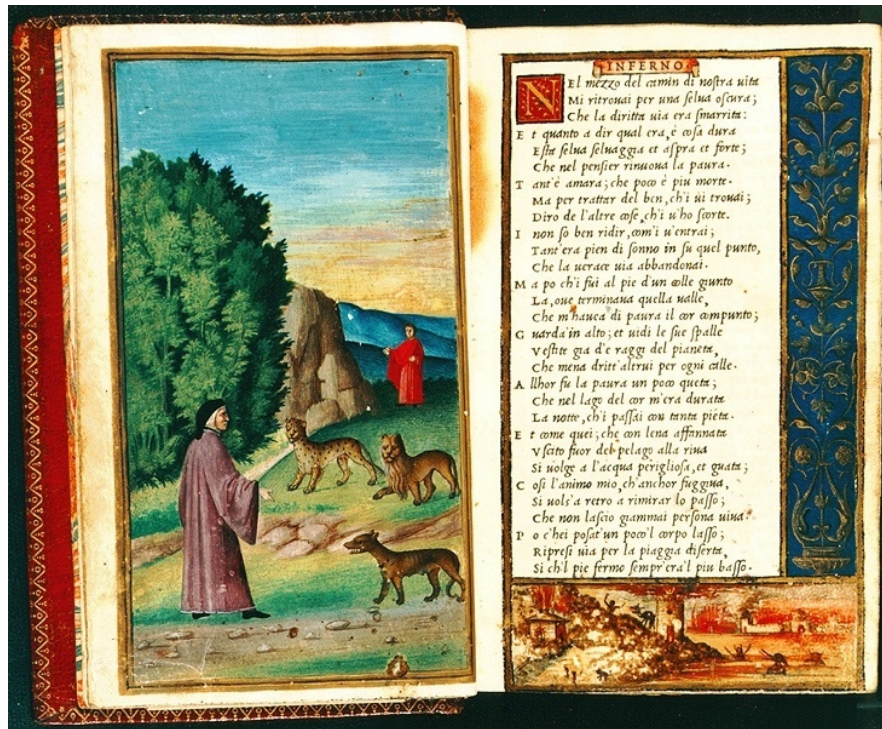 INFERNO
NEl mezzo del camin di noſtra uita
Mi ritrouai per una ſelua oſcura;
Che la diritta uia era ſmarrita:
E t quanto a dir qual era, è coſa dura
Eſta ſelua ſeluaggia et aſpra et forte;
Che nel penſier rinuoua la paura.
T ant'è amara; che poco è piu morte.
Ma per trattar del ben, ch'i ui trouai;
Diro de l'altre coſe, ch'i u'ho ſcorte.
I non ſo ben ridir, com'i u'entrai;
Tant'era pien di ſonno in ſu quel punto,
Che la uerace uia abbandonai.
M a po ch'i fui al pie d'un colle giunto
La, oue terminaua quella ualle,
Che m'hauea di paura il cor compunto;
G uarda'in alto; et uidi le ſue ſpalle
Veſtite gia d'e raggi del pianeta,
Che mena dritt'altrui per ogni calle.
A llhor fu la paura un poco queta;
Che nel lago del cor m'era durata
La notte, ch'i paſſai con tanta pieta.
E t come quei; che con lena affannata
Vſcito fuor del pelago alla riua
Si uolge a l'acqua perigliosa, et guata;
C oſi l'animo mio, ch'anchor fuggiua,
Si uolſ'a retro a rimirar lo paſſo;
Che non laſcio giammai perſona uiua.
P o c'hei poſat'un poco'l corpo laſſo;
Ripreſi uia per la piaggia diſerta,
Si ch'l pie fermo ſempr'era'l piu baſſo.